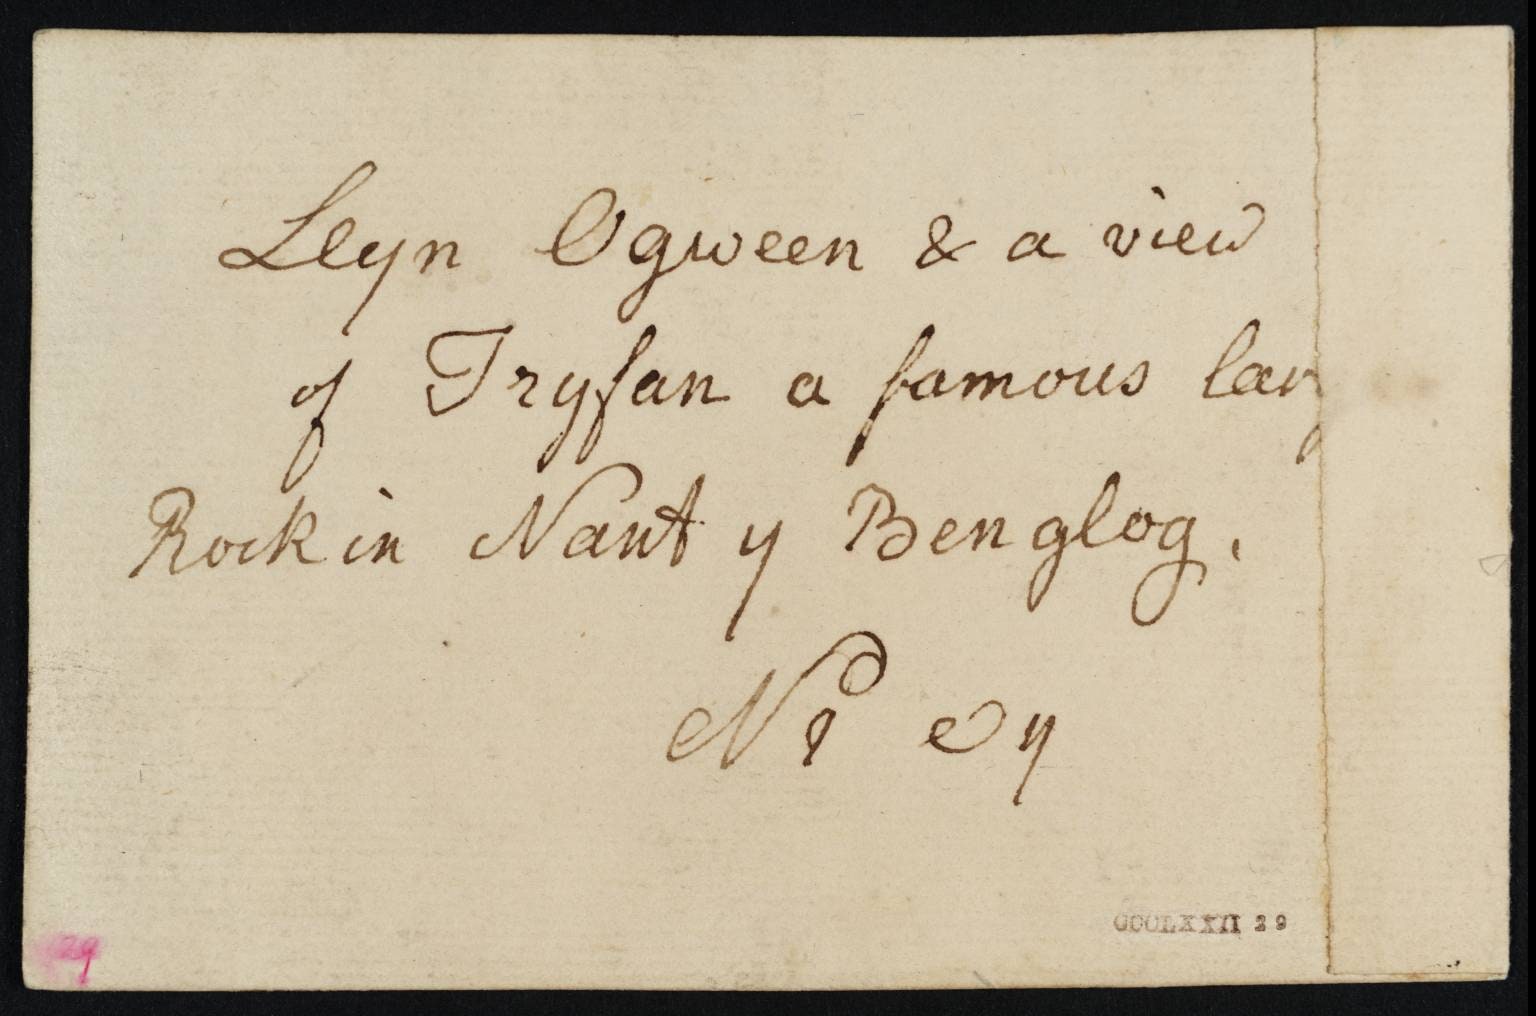 Llyn Ogween & a view
of Tryfan a famous larg
Rock in Nant y Benglog.
CCCLXXII 29
29